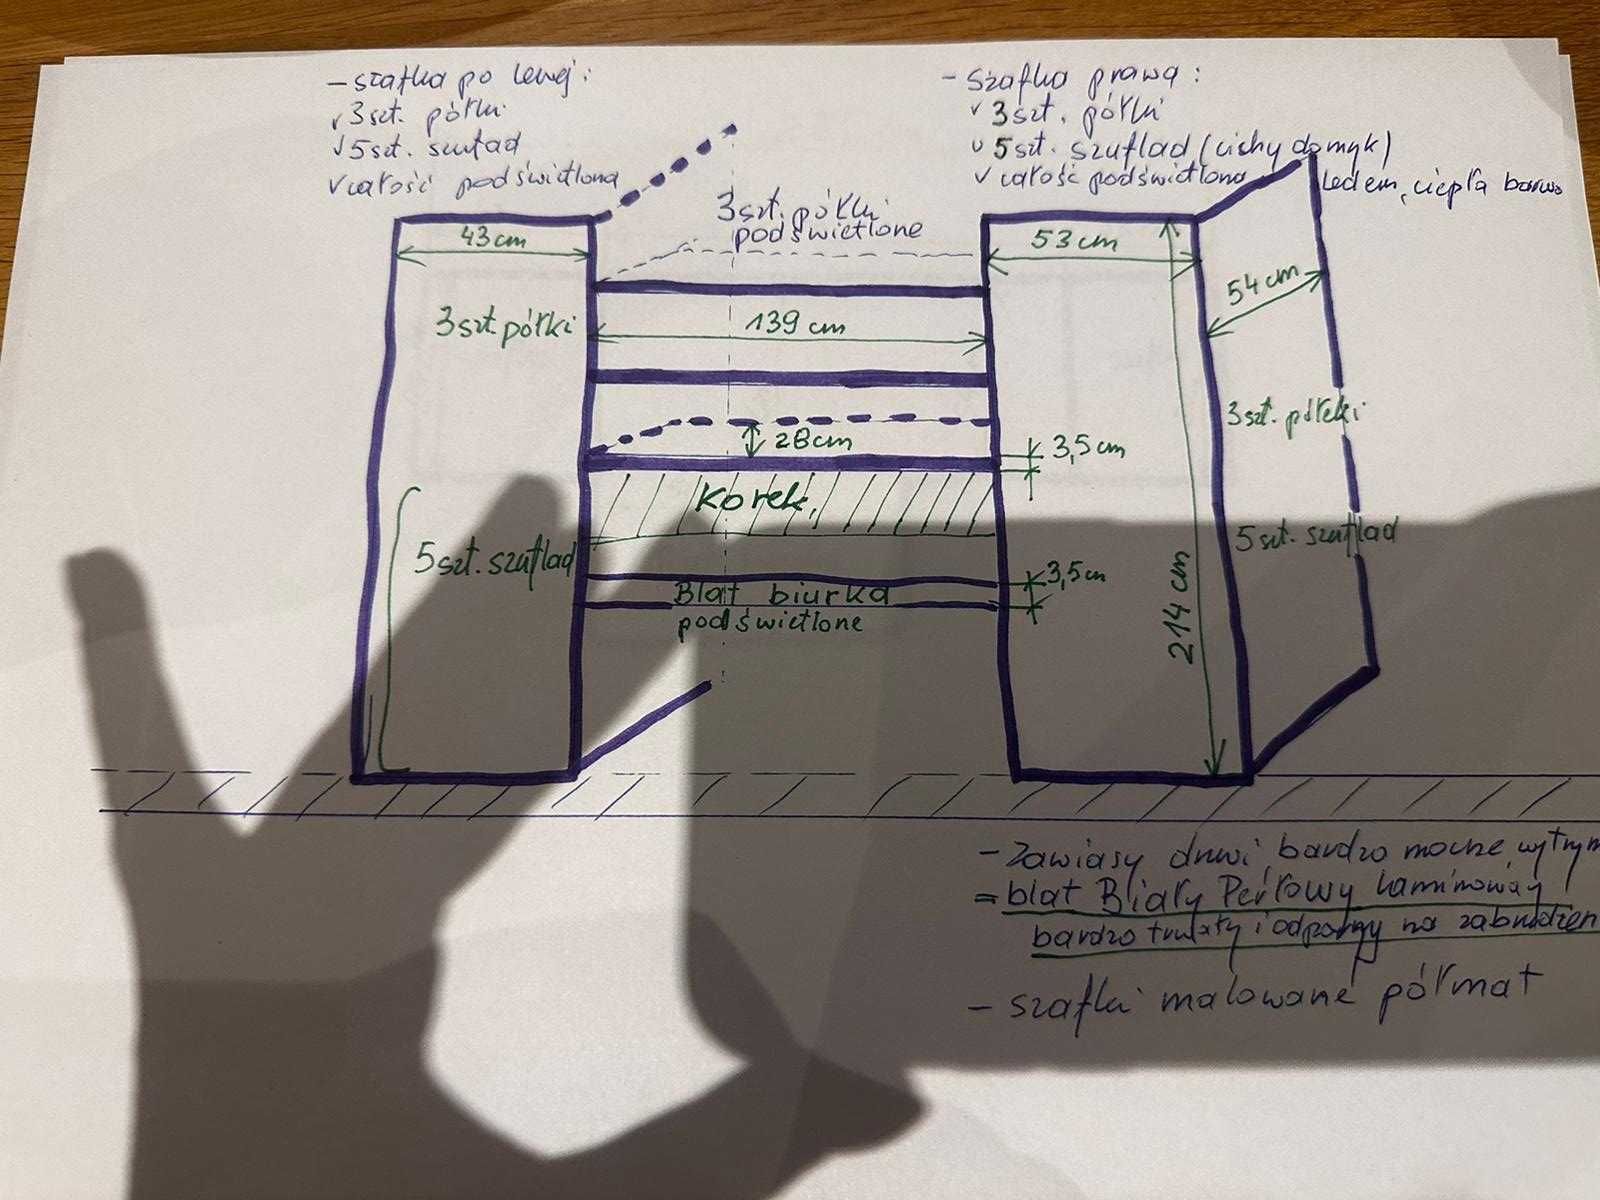 - szafka po lewej:
✓ 3szt. półki
✓ 5szt. szuflad
✓ całość podświetlona
- szafka prawa:
✓ 3szt. półki
✓ 5szt. szuflad (cichy domyk)
✓ całość podświetlona ledem, ciepła barwa
3szt. półki
podświetlone
43cm
53cm
54cm
3szt. półki
139cm
3szt. półeki
28cm
3,5cm
Korek,
5szt. szuflad
5szt. szuflad
214cm
3,5cm
Blat biurka
podświetlone
- Zawiasy drzwi bardzo mocne,
= blat Biały Perłowy Laminowany
bardzo trwały i odporny na
- szafki malowane półmat